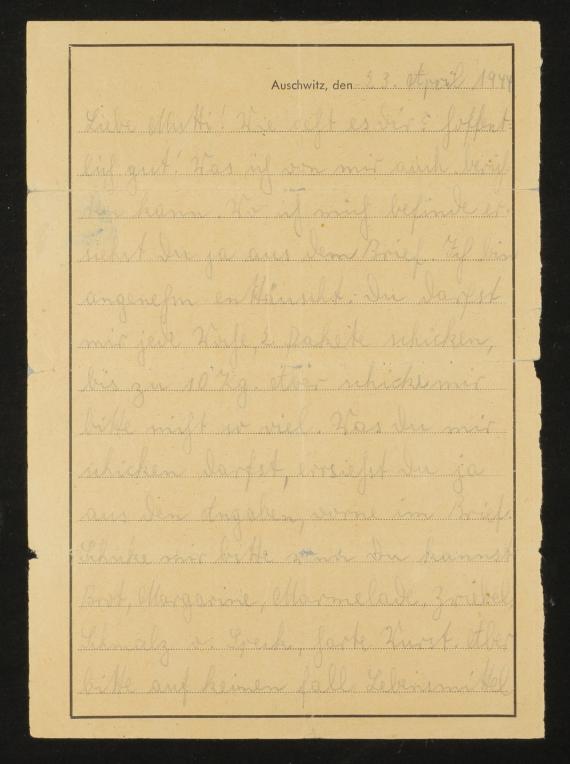 Auschwitz, den 23. April 1944
Liebe Mutti! Wie geht es dir? Hoffent-
lich gut! Was ich von mir auch berich-
ten kann. Wo ich mich befinde er-
siehst Du ja aus dem Brief. Ich bin
angenehm enttäuscht. Du darfst
mir jede Woche, 2 Pakete schicken,
bis zu 10 Kg. Aber schicke mir
bitte nicht so viel. Was du mir
schicken darfst, errsiehst du ja
aus den Angaben, vorne im Brief.
Schicke mir bitte wenn Du kannst
Brot, Margarine, Marmelade, Zwiebel,
Schmalz o. Speck, harte Wurst. Aber
bitte auf keinen fall Lebensmittel